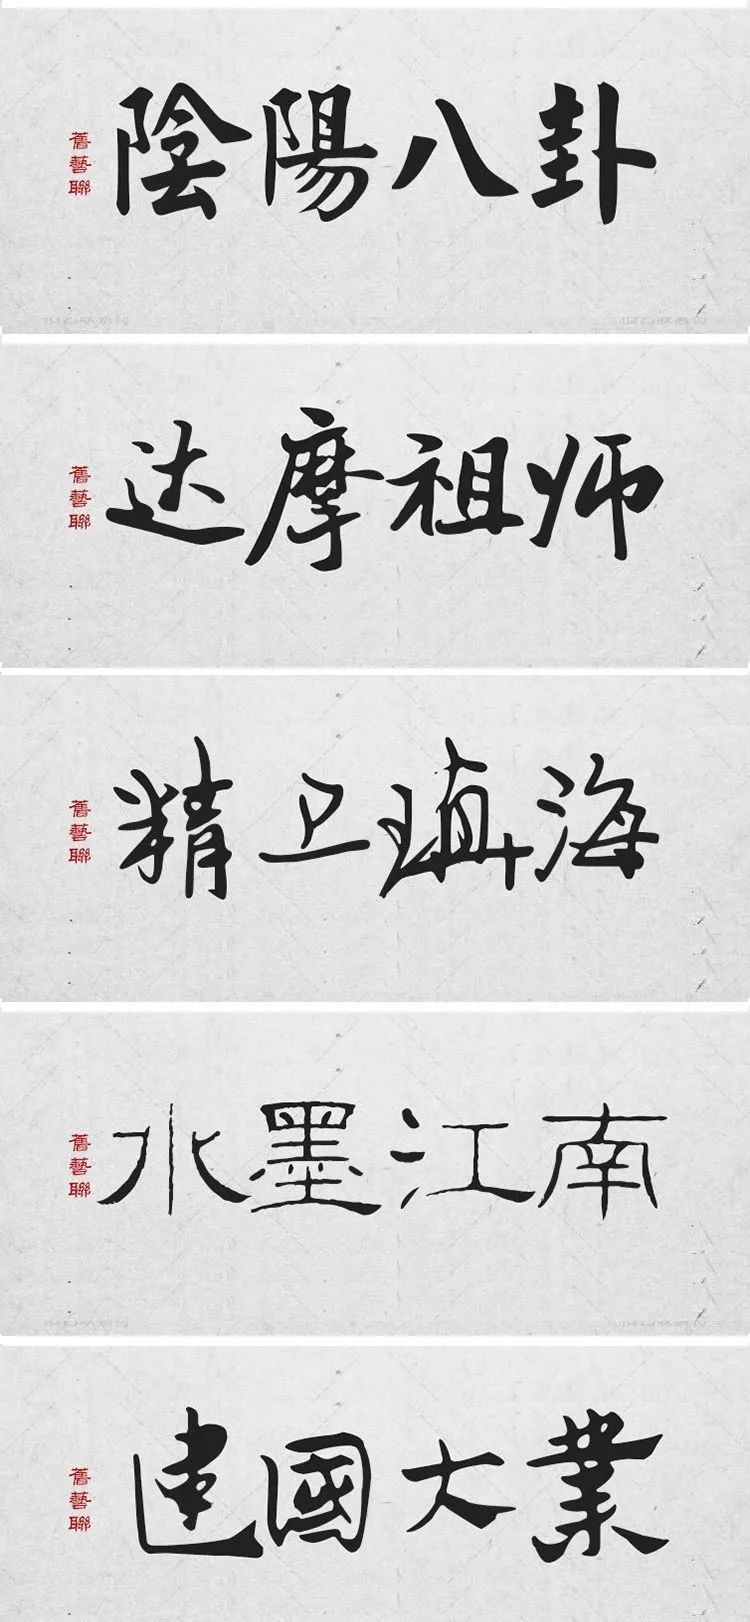 陰陽八卦
舊藝聯
达摩祖师
舊藝聯
精卫填海
舊藝聯
水墨江南
舊藝聯
建國大業
舊藝聯